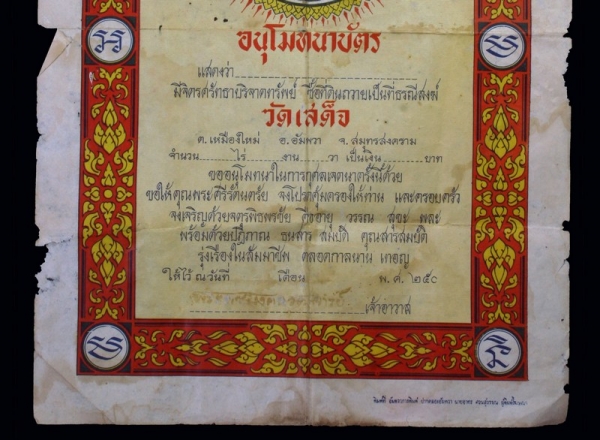 อนุโมทนาบัตร
แสดงว่า
มีจิตรศรัทธาบริจาคทรัพย์ ซื้อที่ดินถวายเป็นที่ธรณีสงฆ์
วัดเสด็จ
ต. เหมืองใหม่ อ. อัมพวา จ. สมุทรสงคราม
จำนวน ไร่ งาน วา เป็นเงิน บาท
ขออนุโมทนาในการกุศลเจตนาครั้งนี้ด้วย
ขอให้คุณพระศรีรัตนตรัย จงโปรดคุ้มครองให้ท่าน และครอบครัว
จงเจริญด้วยจตุรพิธพรชัย คืออายุ วรรณ สุขะ พละ
พร้อมด้วยปฏิภาณ ธนสาร สมบัติ คุณสารสมบัติ
รุ่งเรืองในสัมมาชีพ ตลอดกาลนาน เทอญ
ให้ไว้ ณ วันที่ เดือน พ. ศ. ๒๕๐
เจ้าอาวาส